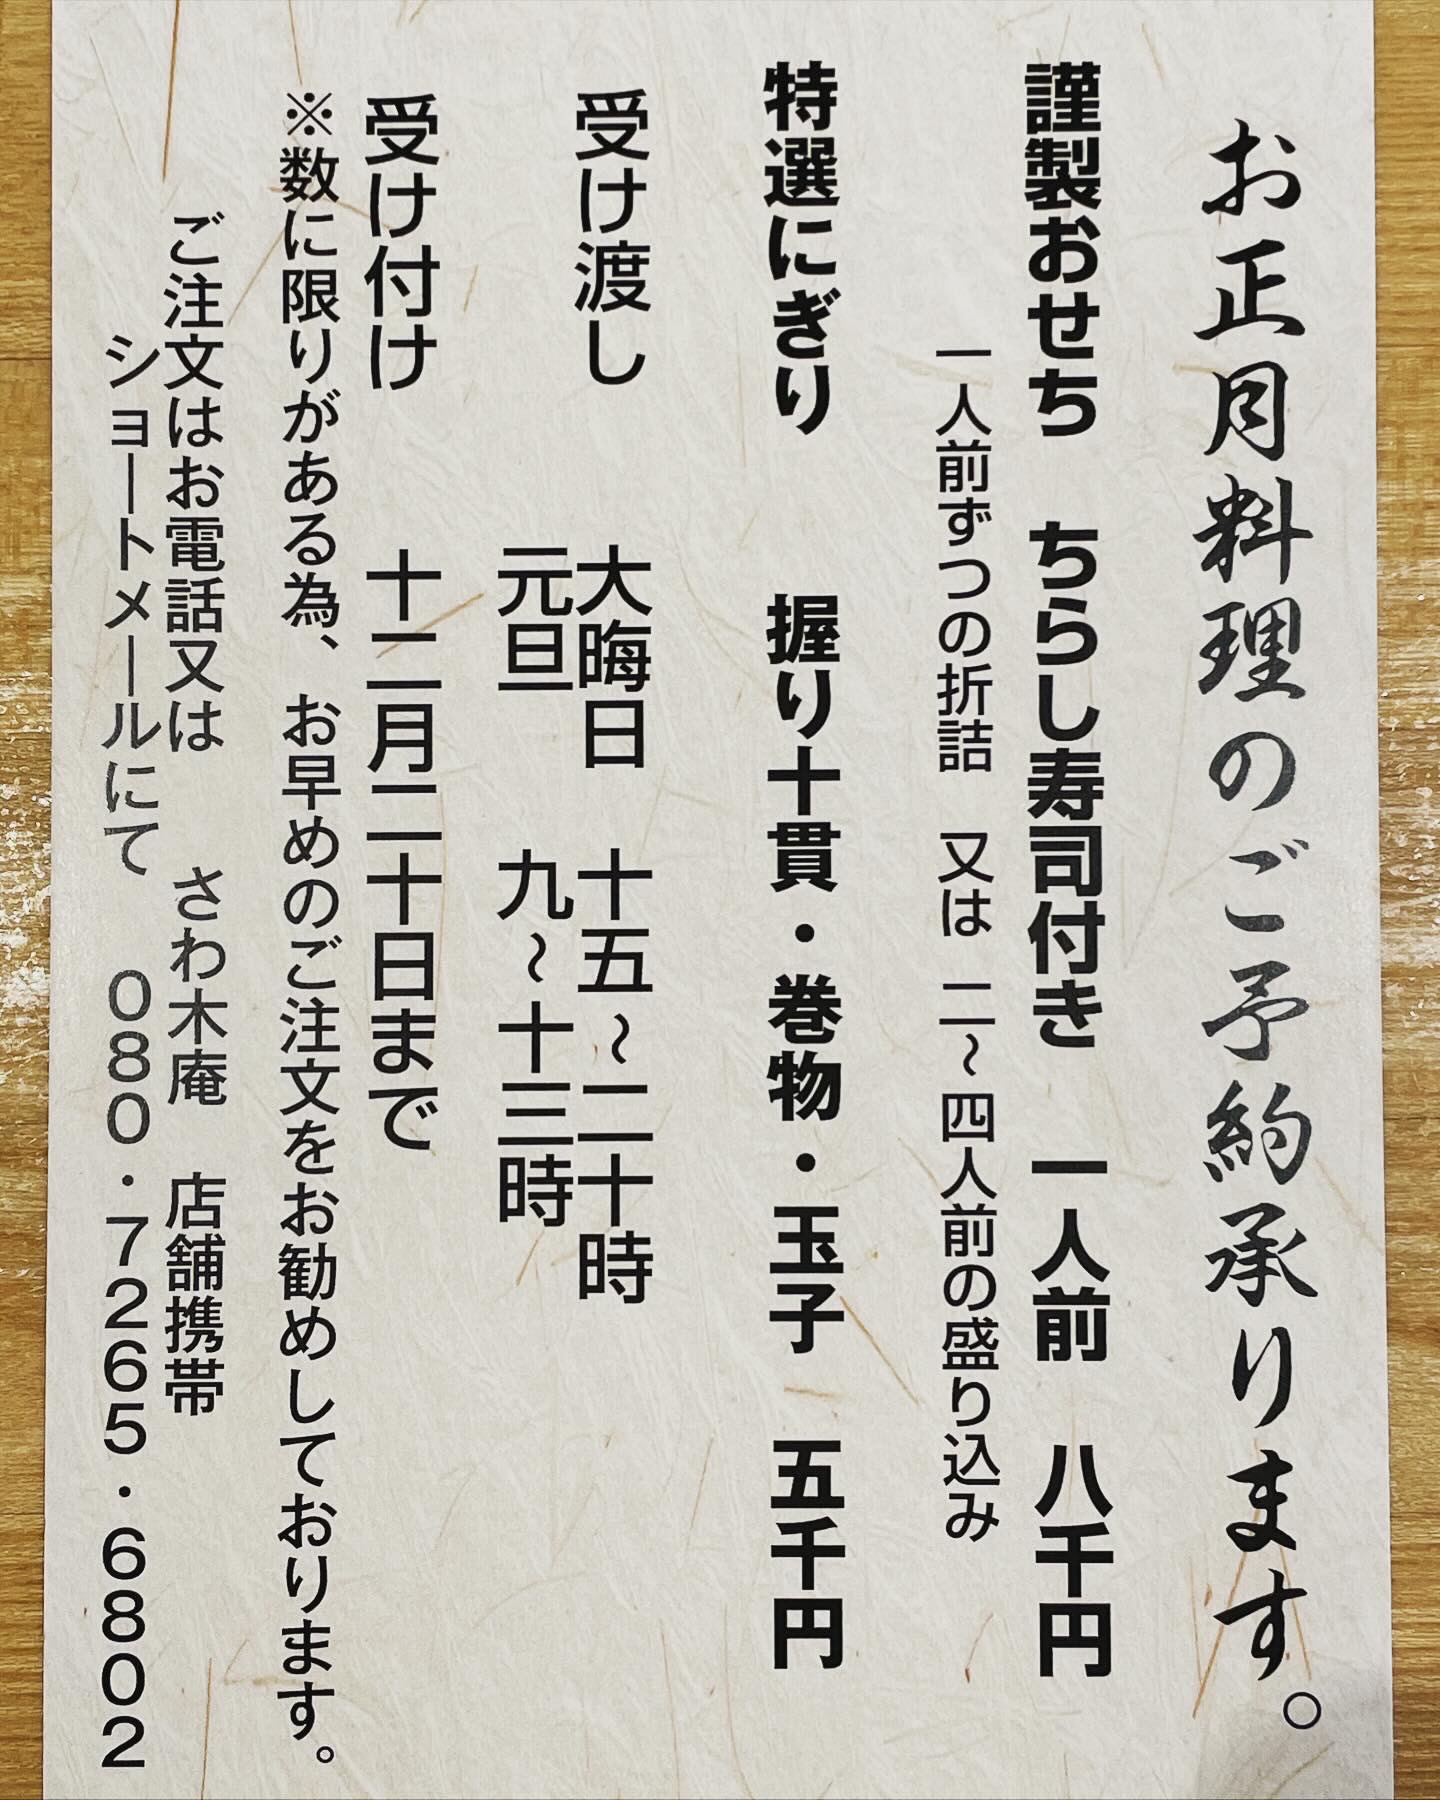 お正月料理のご予約承ります。
謹製おせち　ちらし寿司付き　一人前　八千円
一人前ずつの折詰　又は　二〜四人前の盛り込み
特選にぎり　握り十貫・巻物・玉子　五千円
受け渡し　大晦日　十五〜二十時
元旦　九〜十三時
受け付け　十二月二十日まで
※数に限りがある為、お早めのご注文をお勧めしております。
ご注文はお電話又は　さわ木庵　店舗携帯
ショートメールにて　０８０・７２６５・６８０２